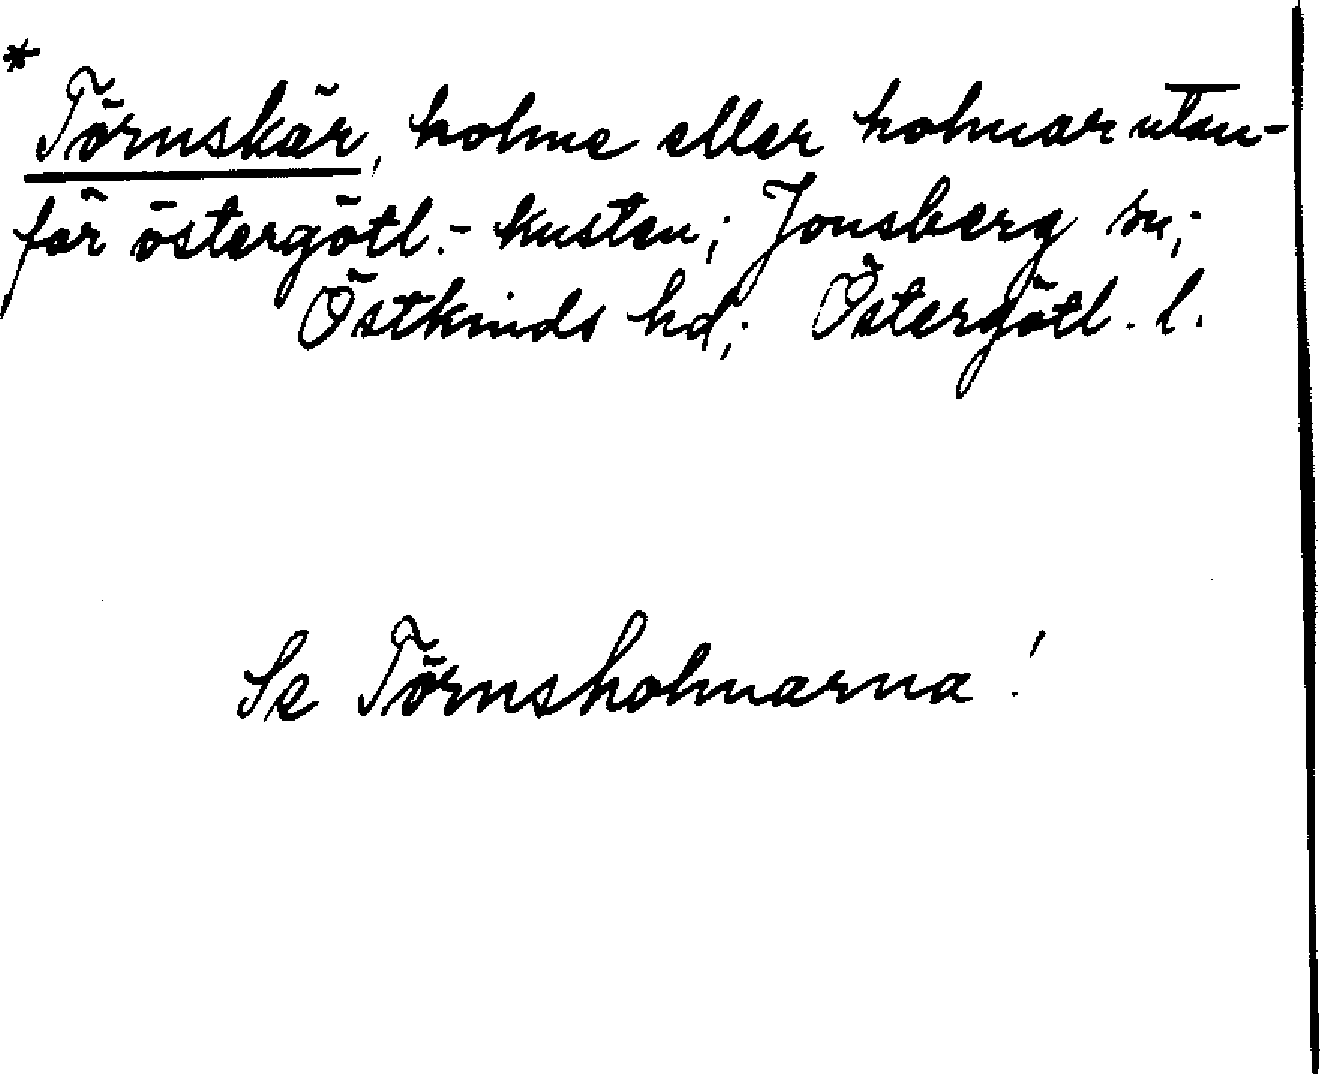 *
Törnskär, holme eller holmar utan-
för östergötl.- kusten; Jonsberg sn;
Östkinds hd; Östergötl. l.
Se Törnsholmarna!